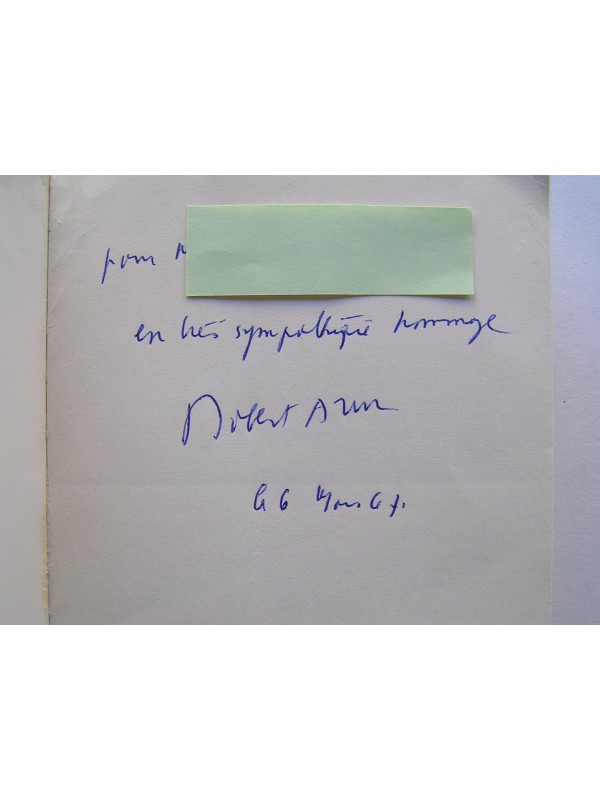 pour
en très sympathique hommage
Robert Aron
le 6 Mars 67.